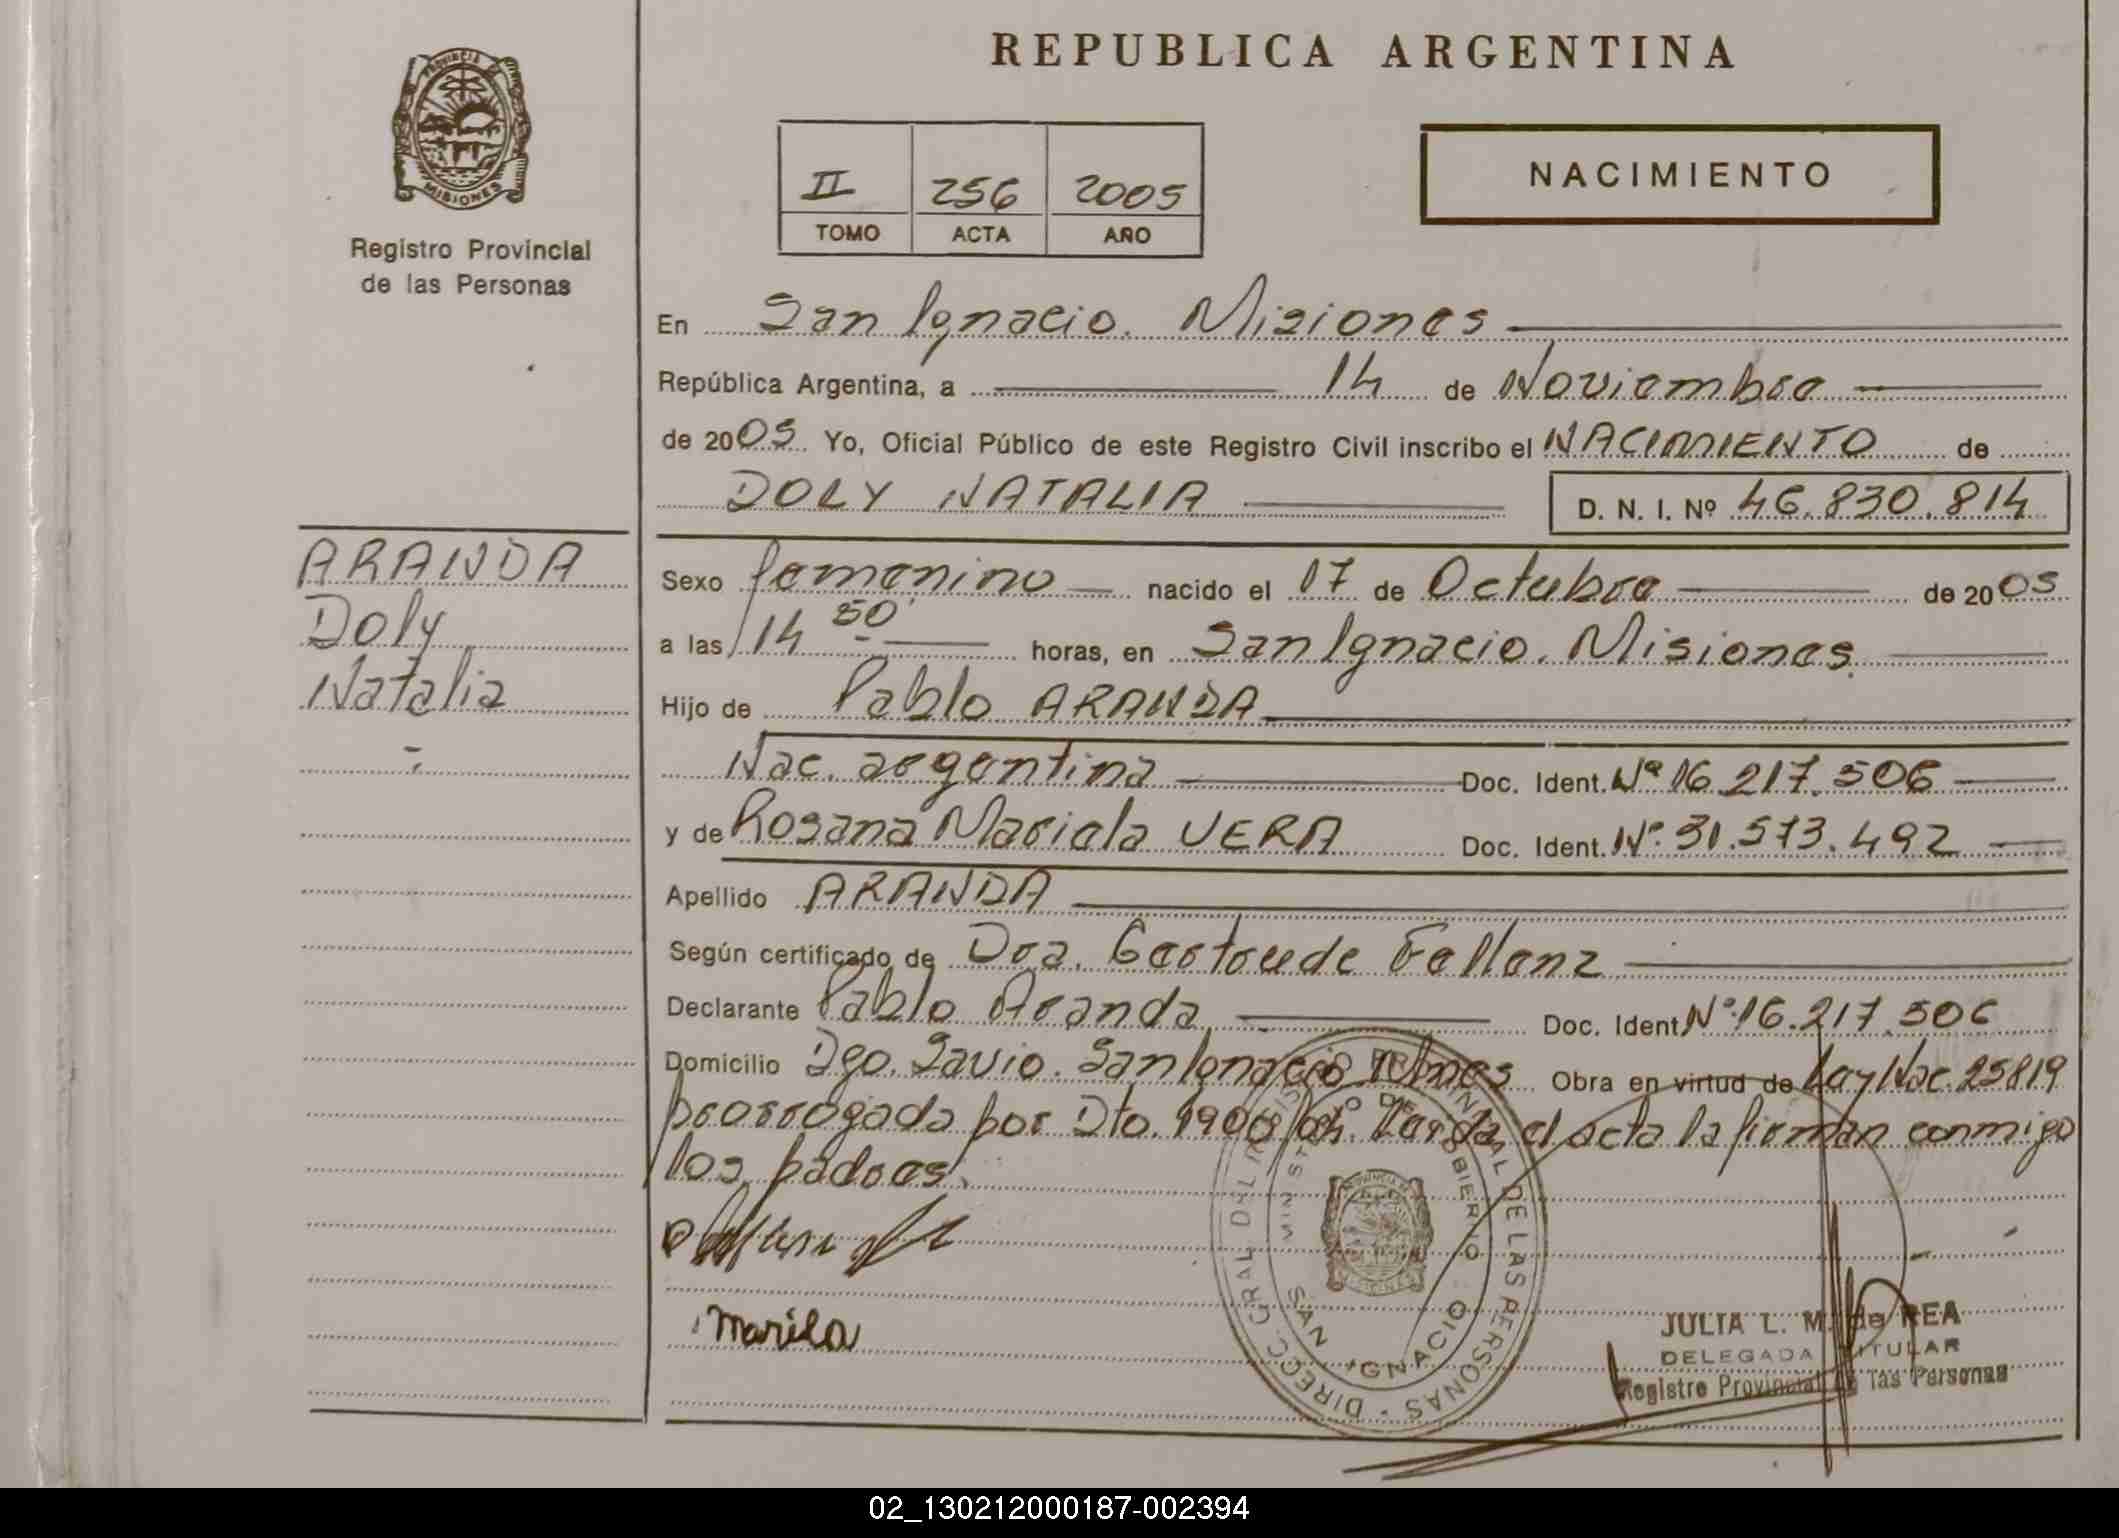 REPUBLICA ARGENTINA
PROVINCIA DE
MISIONES
Registro Provincial
de las Personas
II 256 2005
TOMO ACTA AÑO
NACIMIENTO
En San Ignacio. Misiones
República Argentina, a 14 de Noviembre
de 2005 Yo, Oficial Público de este Registro Civil inscribo el NACIMIENTO de
DOLY NATALIA D. N. I. Nº 46.830.814
ARANDA
Doly
Natalia
Sexo femenino nacido el 17 de Octubre de 2005
a las 14 50' horas, en San Ignacio. Misiones.
Hijo de Pablo ARANDA
Nac. argentina Doc. Ident. Nº 16.217.506
y de Rosana Mariela VERA Doc. Ident. Nº 31.573.492
Apellido ARANDA
Según certificado de Dra. Gertrude Fellenz
Declarante Pablo Aranda Doc. Ident. Nº 16.217.506
Domicilio Dgo. Savio. San Ignacio Mnes Obra en virtud de Ley Nac. 25819
prorrogada por Dto. 1900/04. el acta la firman conmigo
los padres.
Mariela
DIRECC. GRAL. DEL REGIST. PROVINCIAL DE LAS PERSONAS
MINISTERIO DE GOBIERNO
SAN IGNACIO
JULIA L. M. de REA
DELEGADA TITULAR
Registro Provincial de las Personas
02_130212000187-002394